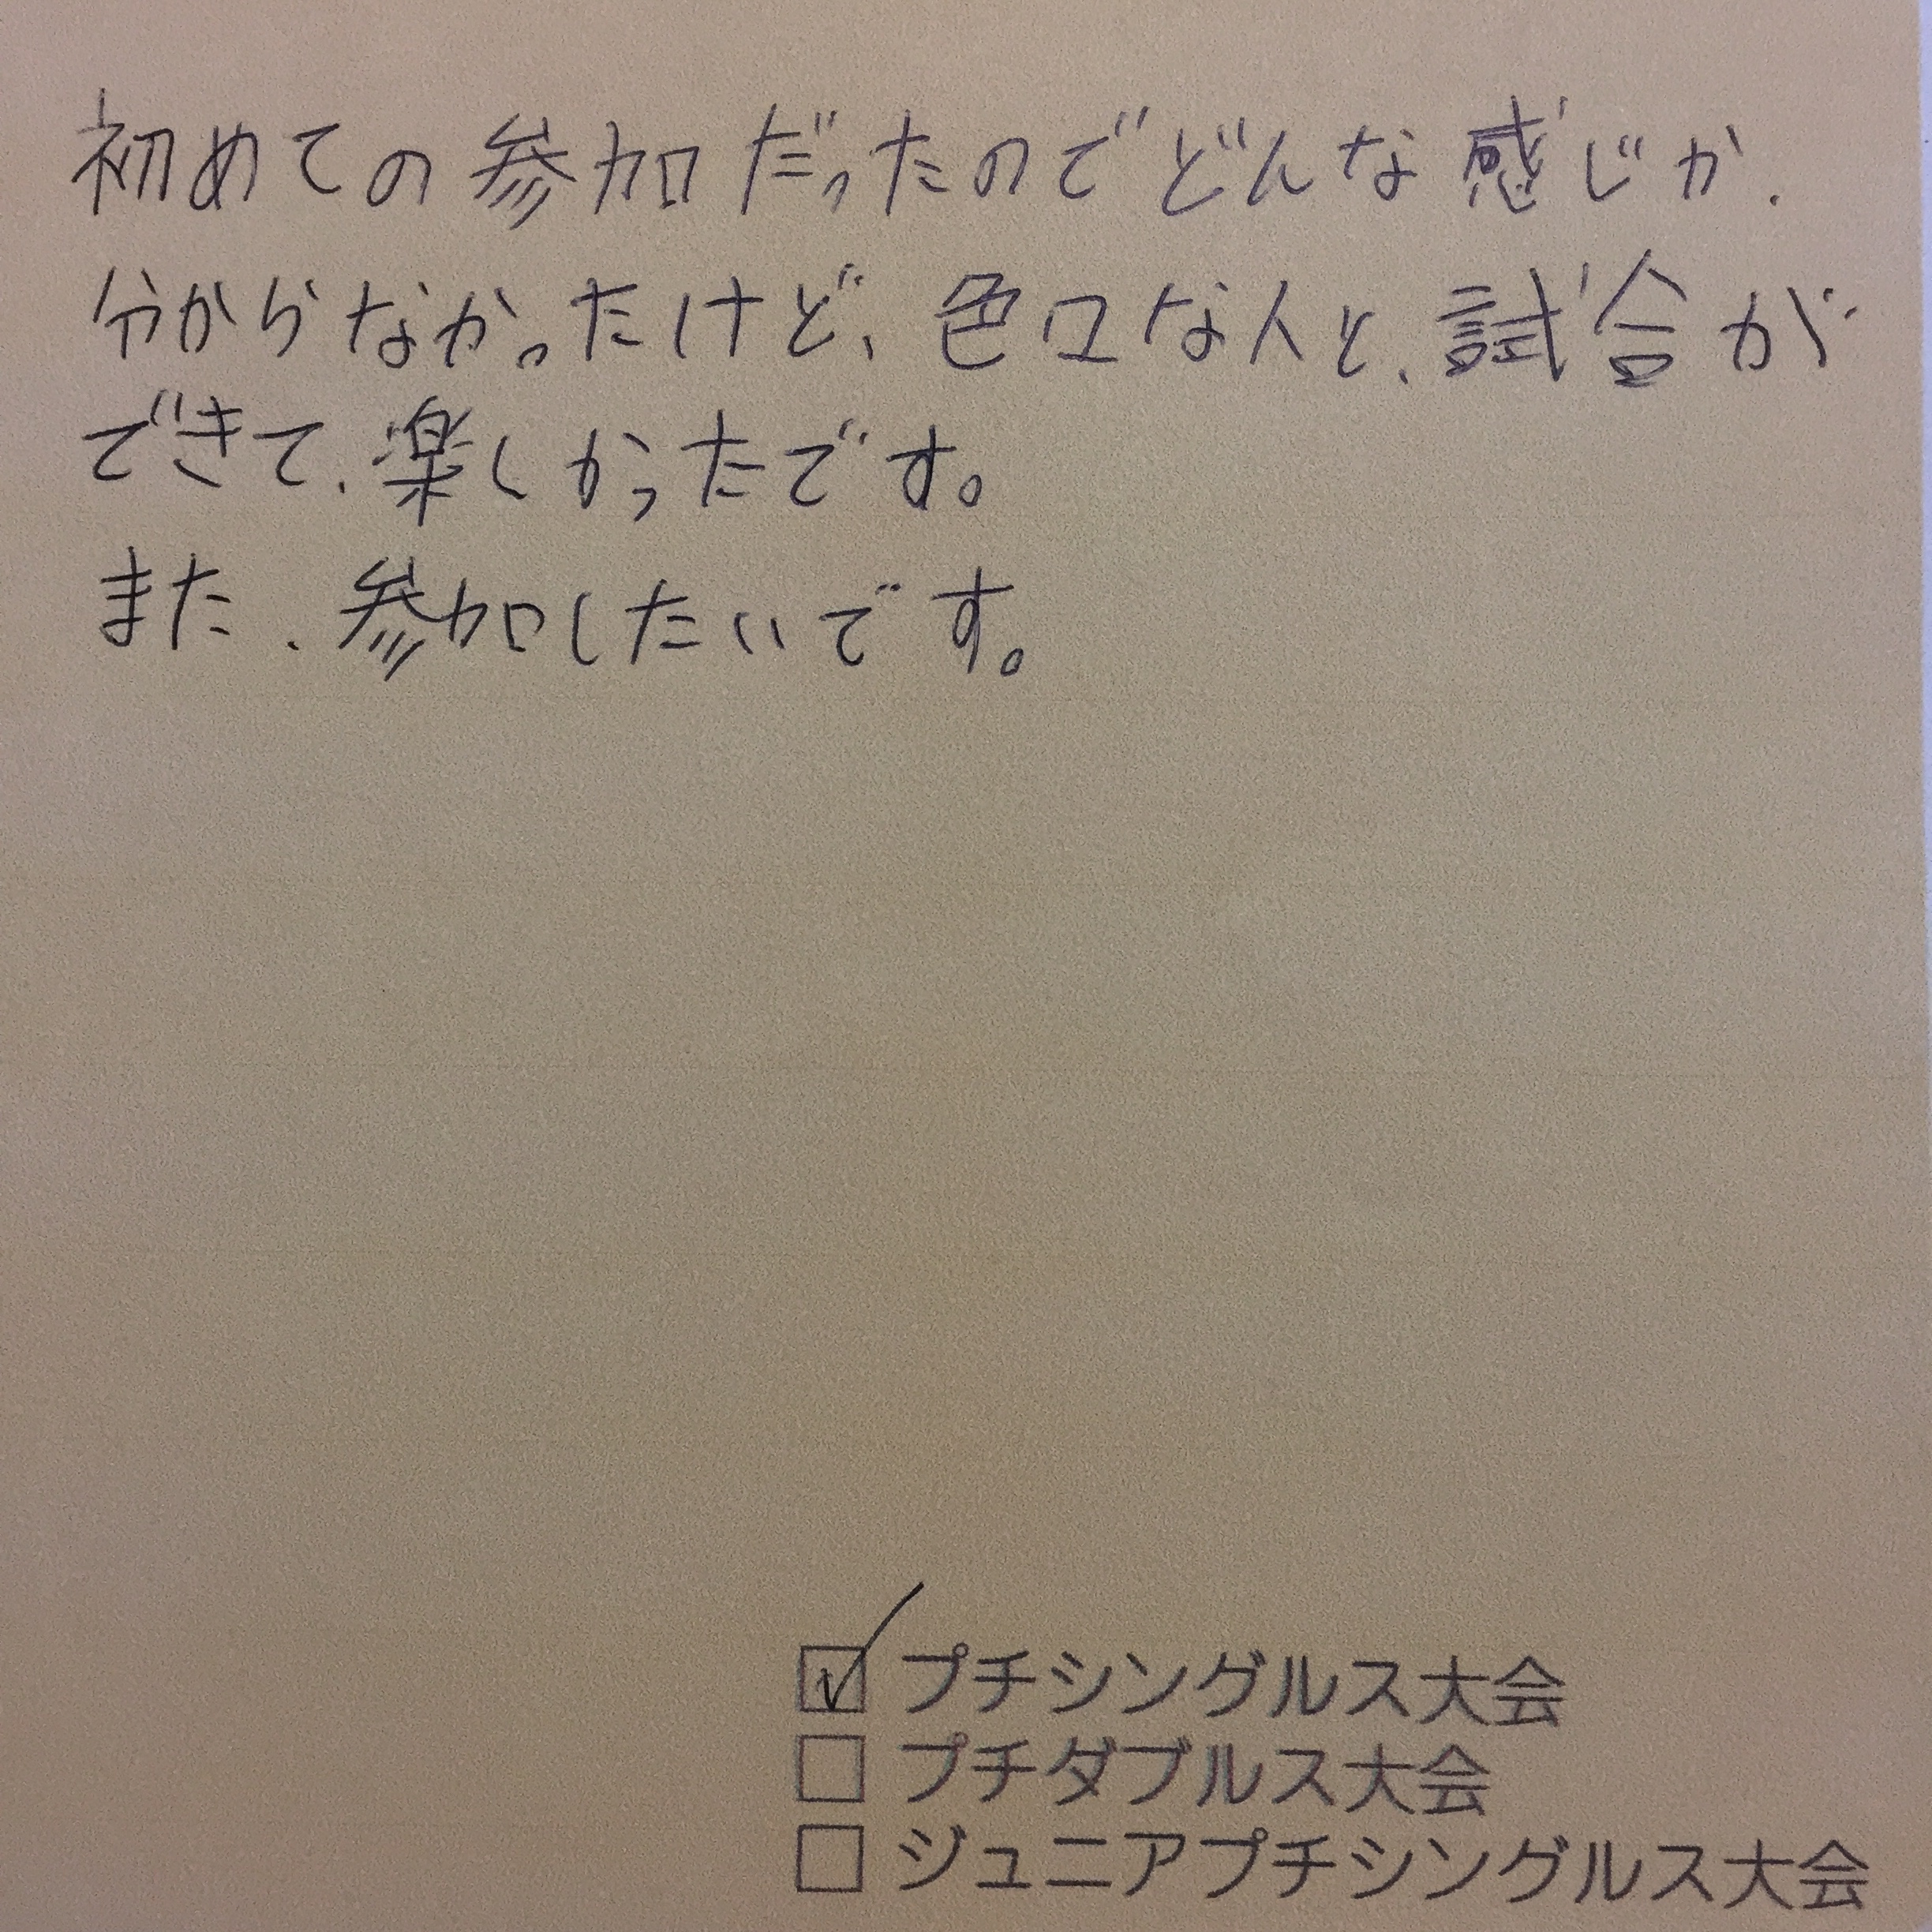 初めての参加だったのでどんな感じか、
分からなかったけど、色々な人と、試合が
できて、楽しかったです。
また、参加したいです。
☑ プチシングルス大会
☐ プチダブルス大会
☐ ジュニアプチシングルス大会